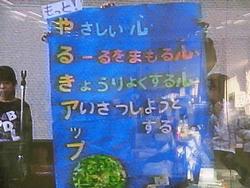 もっと!
やさしい心
るーるをまもる心
きょうりょくする心
アいさつしようと
する心
ップ